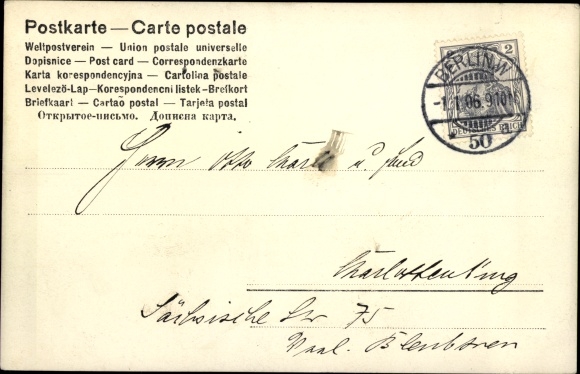 Postkarte — Carte postale
Weltpostverein — Union postale universelle
Dopisnice — Post card — Correspondenzkarte
Karta korespondencyjna — Cartolina postale
Levelező-Lap—Korespondencni listek-Brefkort
Briefkaart — Cartao postal — Tarjeta postal
Открытое-письмо. Дописна карта.
2
BERLIN.W.
-1.1.06.9-10
DEUTSCHES REICH
50 a
Herrn Otto
Charlottenburg
Sächsische Str 75